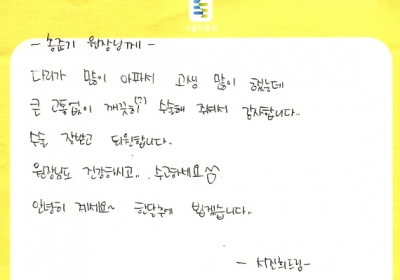 - 송준기 원장님께 -
다리가 많이 아파서 고생 많이 했는데
큰 고통없이 깨끗히(?) 수술해 주셔서 감사합니다..
수술 잘받고 퇴원합니다.
원장님도 건강하시고.. 수고하세요
안녕히 계세요~ 한달후에 뵙겠습니다..
- 서진희드림 -